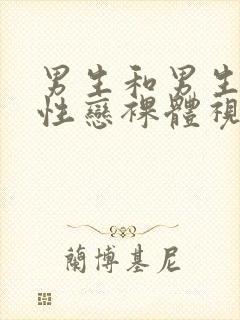 男生和男生
性戀裸體視
蘭博基尼